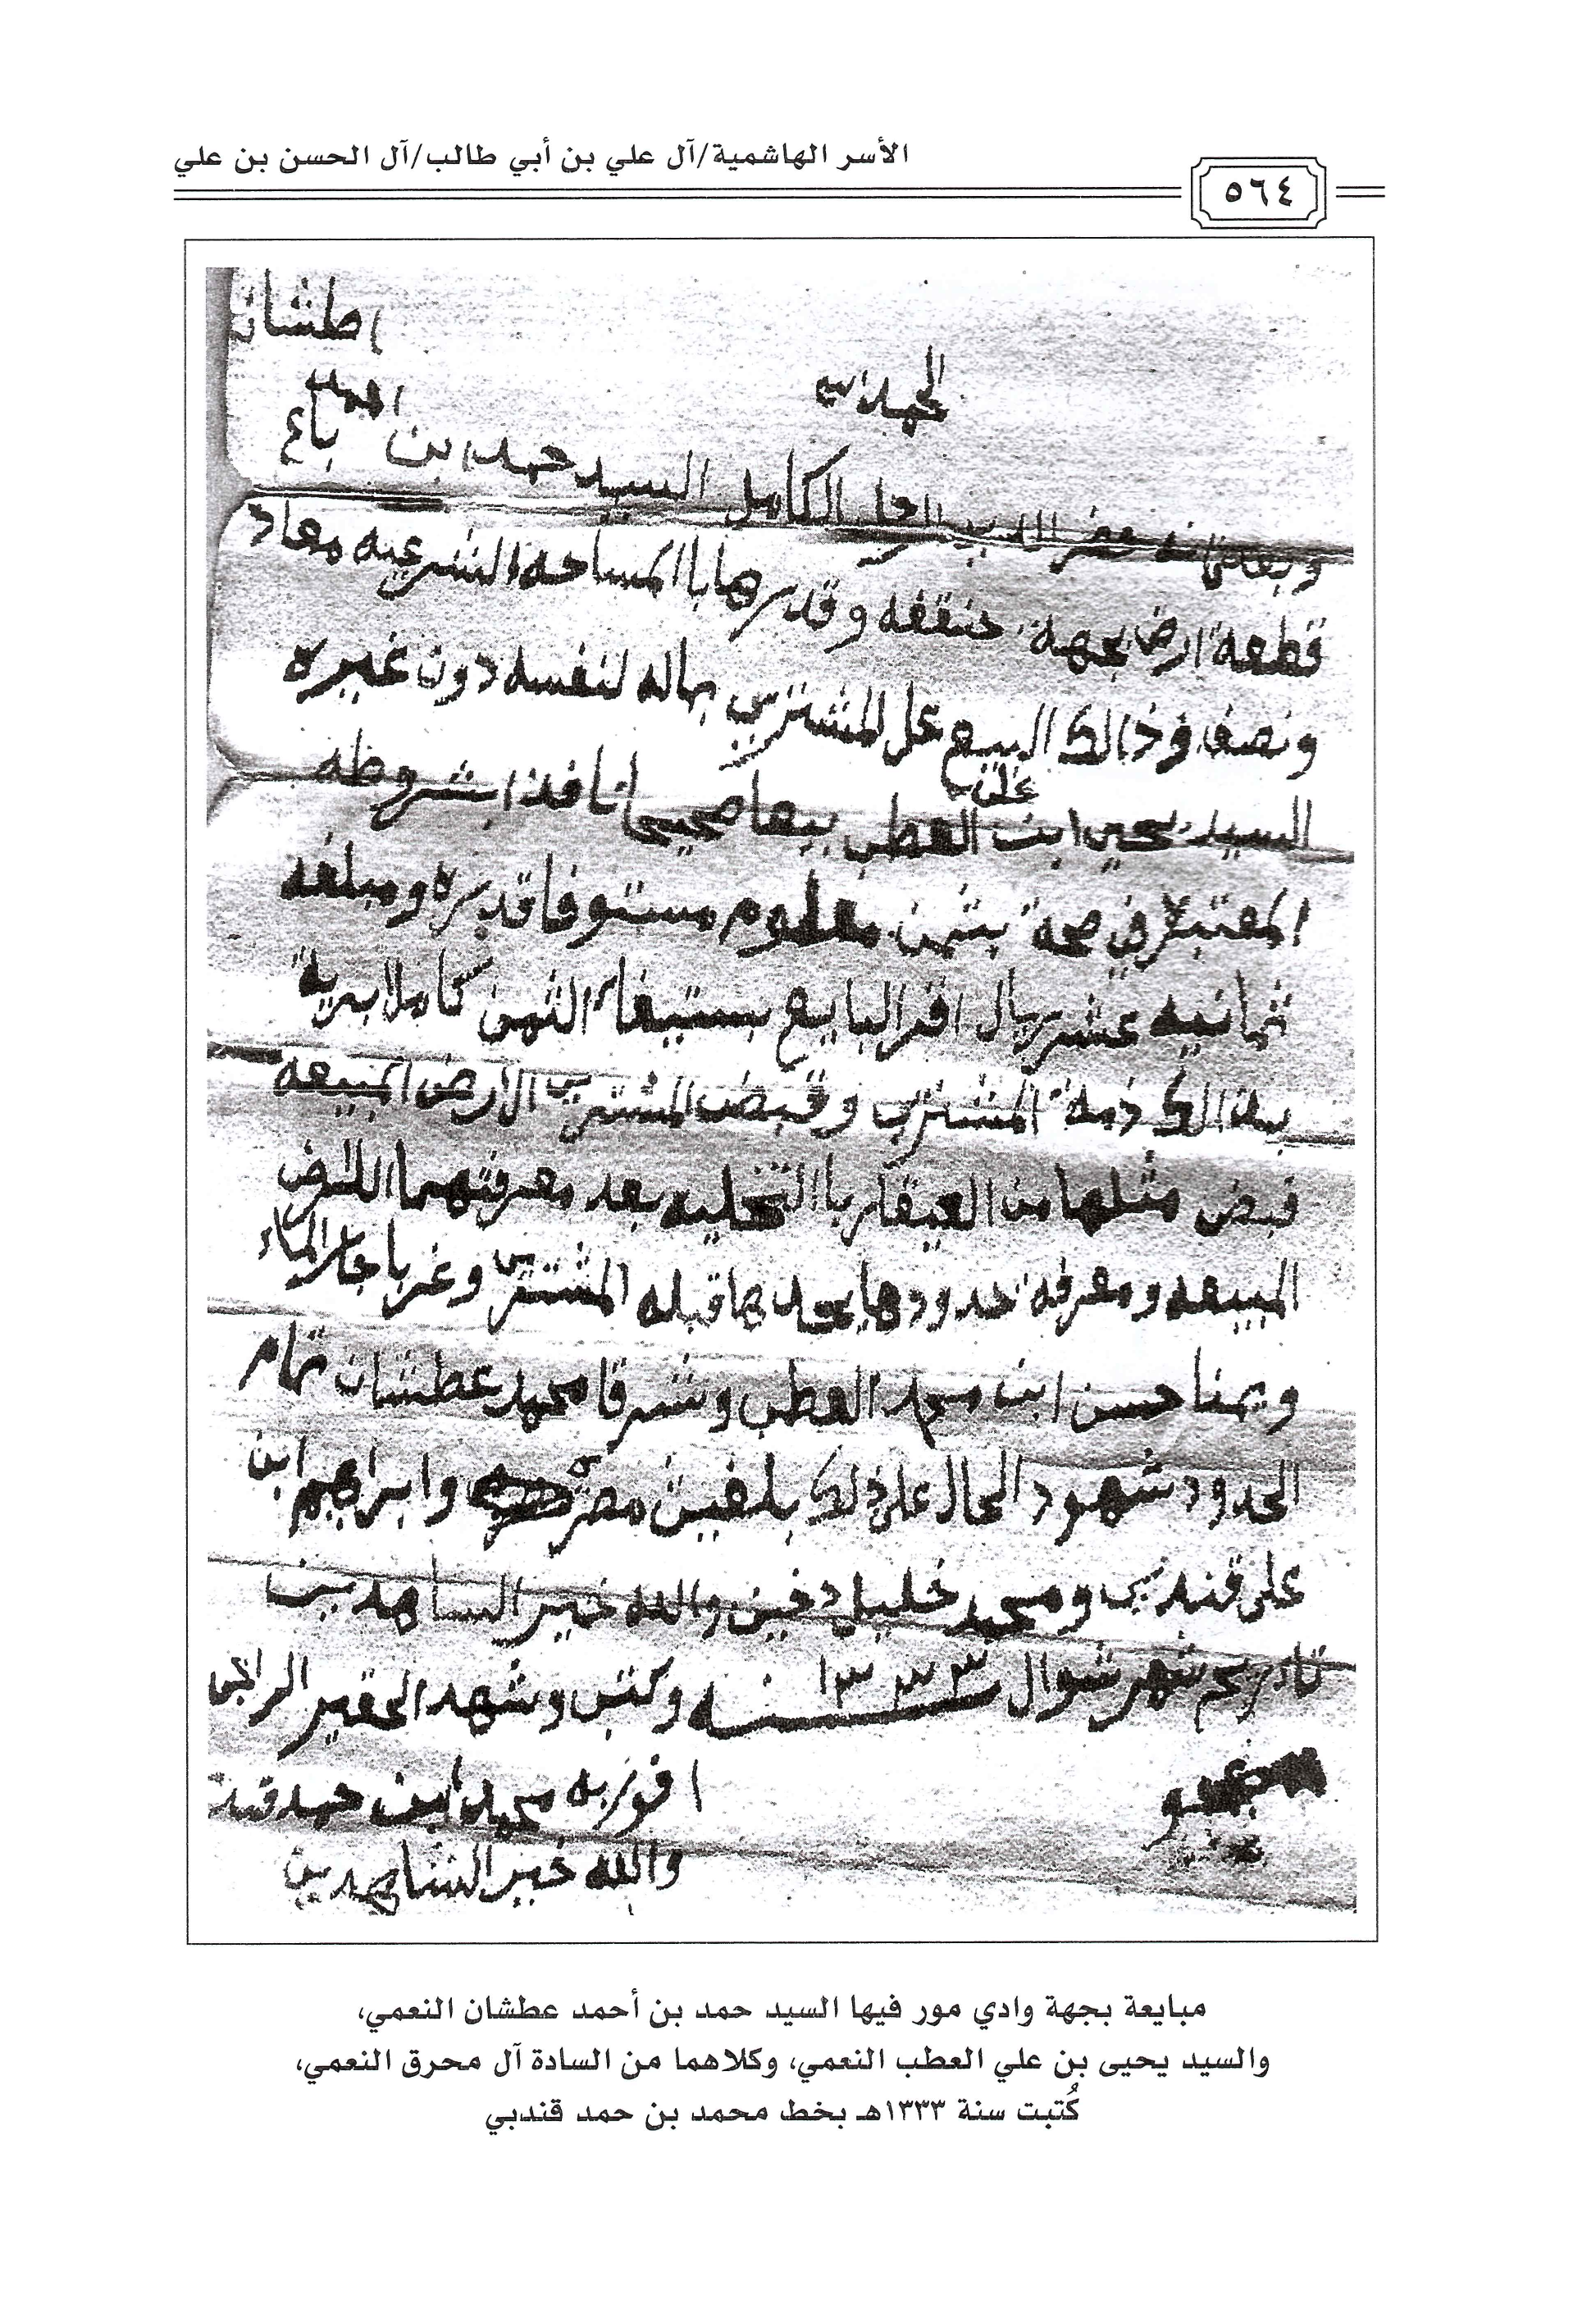 الأسر الهاشمية/آل علي بن أبي طالب/آل الحسن بن علي
٥٦٤
الحمد لله
الكامل السيد حمد ابن احمد باع
قطعة ارض بجهة وقدرها باالمساحه الشرعيه معاد
ونصف وذالك البيع عل المشتري بماله لنفسه دون غيره
السيد يحيى ابن علي العطب بيعا صحيحا نافذا بشروطه
المعتبره في صحة بثمن معلوم مستوفا قدره ومبلغه
ثمانيه عشر ريال اقر البايع بستيفاء الثمن كاملا برية
بذالك ذمة المشتري وقبض المشتري الارض المبيعه
قبض مثلها من العقار باالتخليه بعد معرفتهما
المبيعه ومعرفة حدودها يحد بها قبله المشتري وغربا الماء
ويمنا حسن ابن محمد العطب وشرقا محمد عطشان تمام
الحدود شهود الحال على ذلك وابراهيم ابن
على قندبي ومحمد خليل والله خير الساهدين
شهر شوال ١٣٣٣ سنه وكتب وشهد الحقير الراجي
محمد ابن حمد
والله خير الشاهدين
مبايعة بجهة وادي مور فيها السيد حمد بن أحمد عطشان النعمي،
والسيد يحيى بن علي العطب النعمي، وكلاهما من السادة آل محرق النعمي،
كُتبت سنة ١٣٣٣هـ بخط محمد بن حمد قندبي